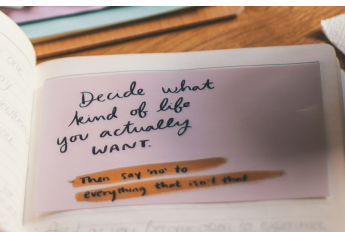 Decide what
kind of life
you actually
WANT.
Then say 'no' to
everything that isn't that